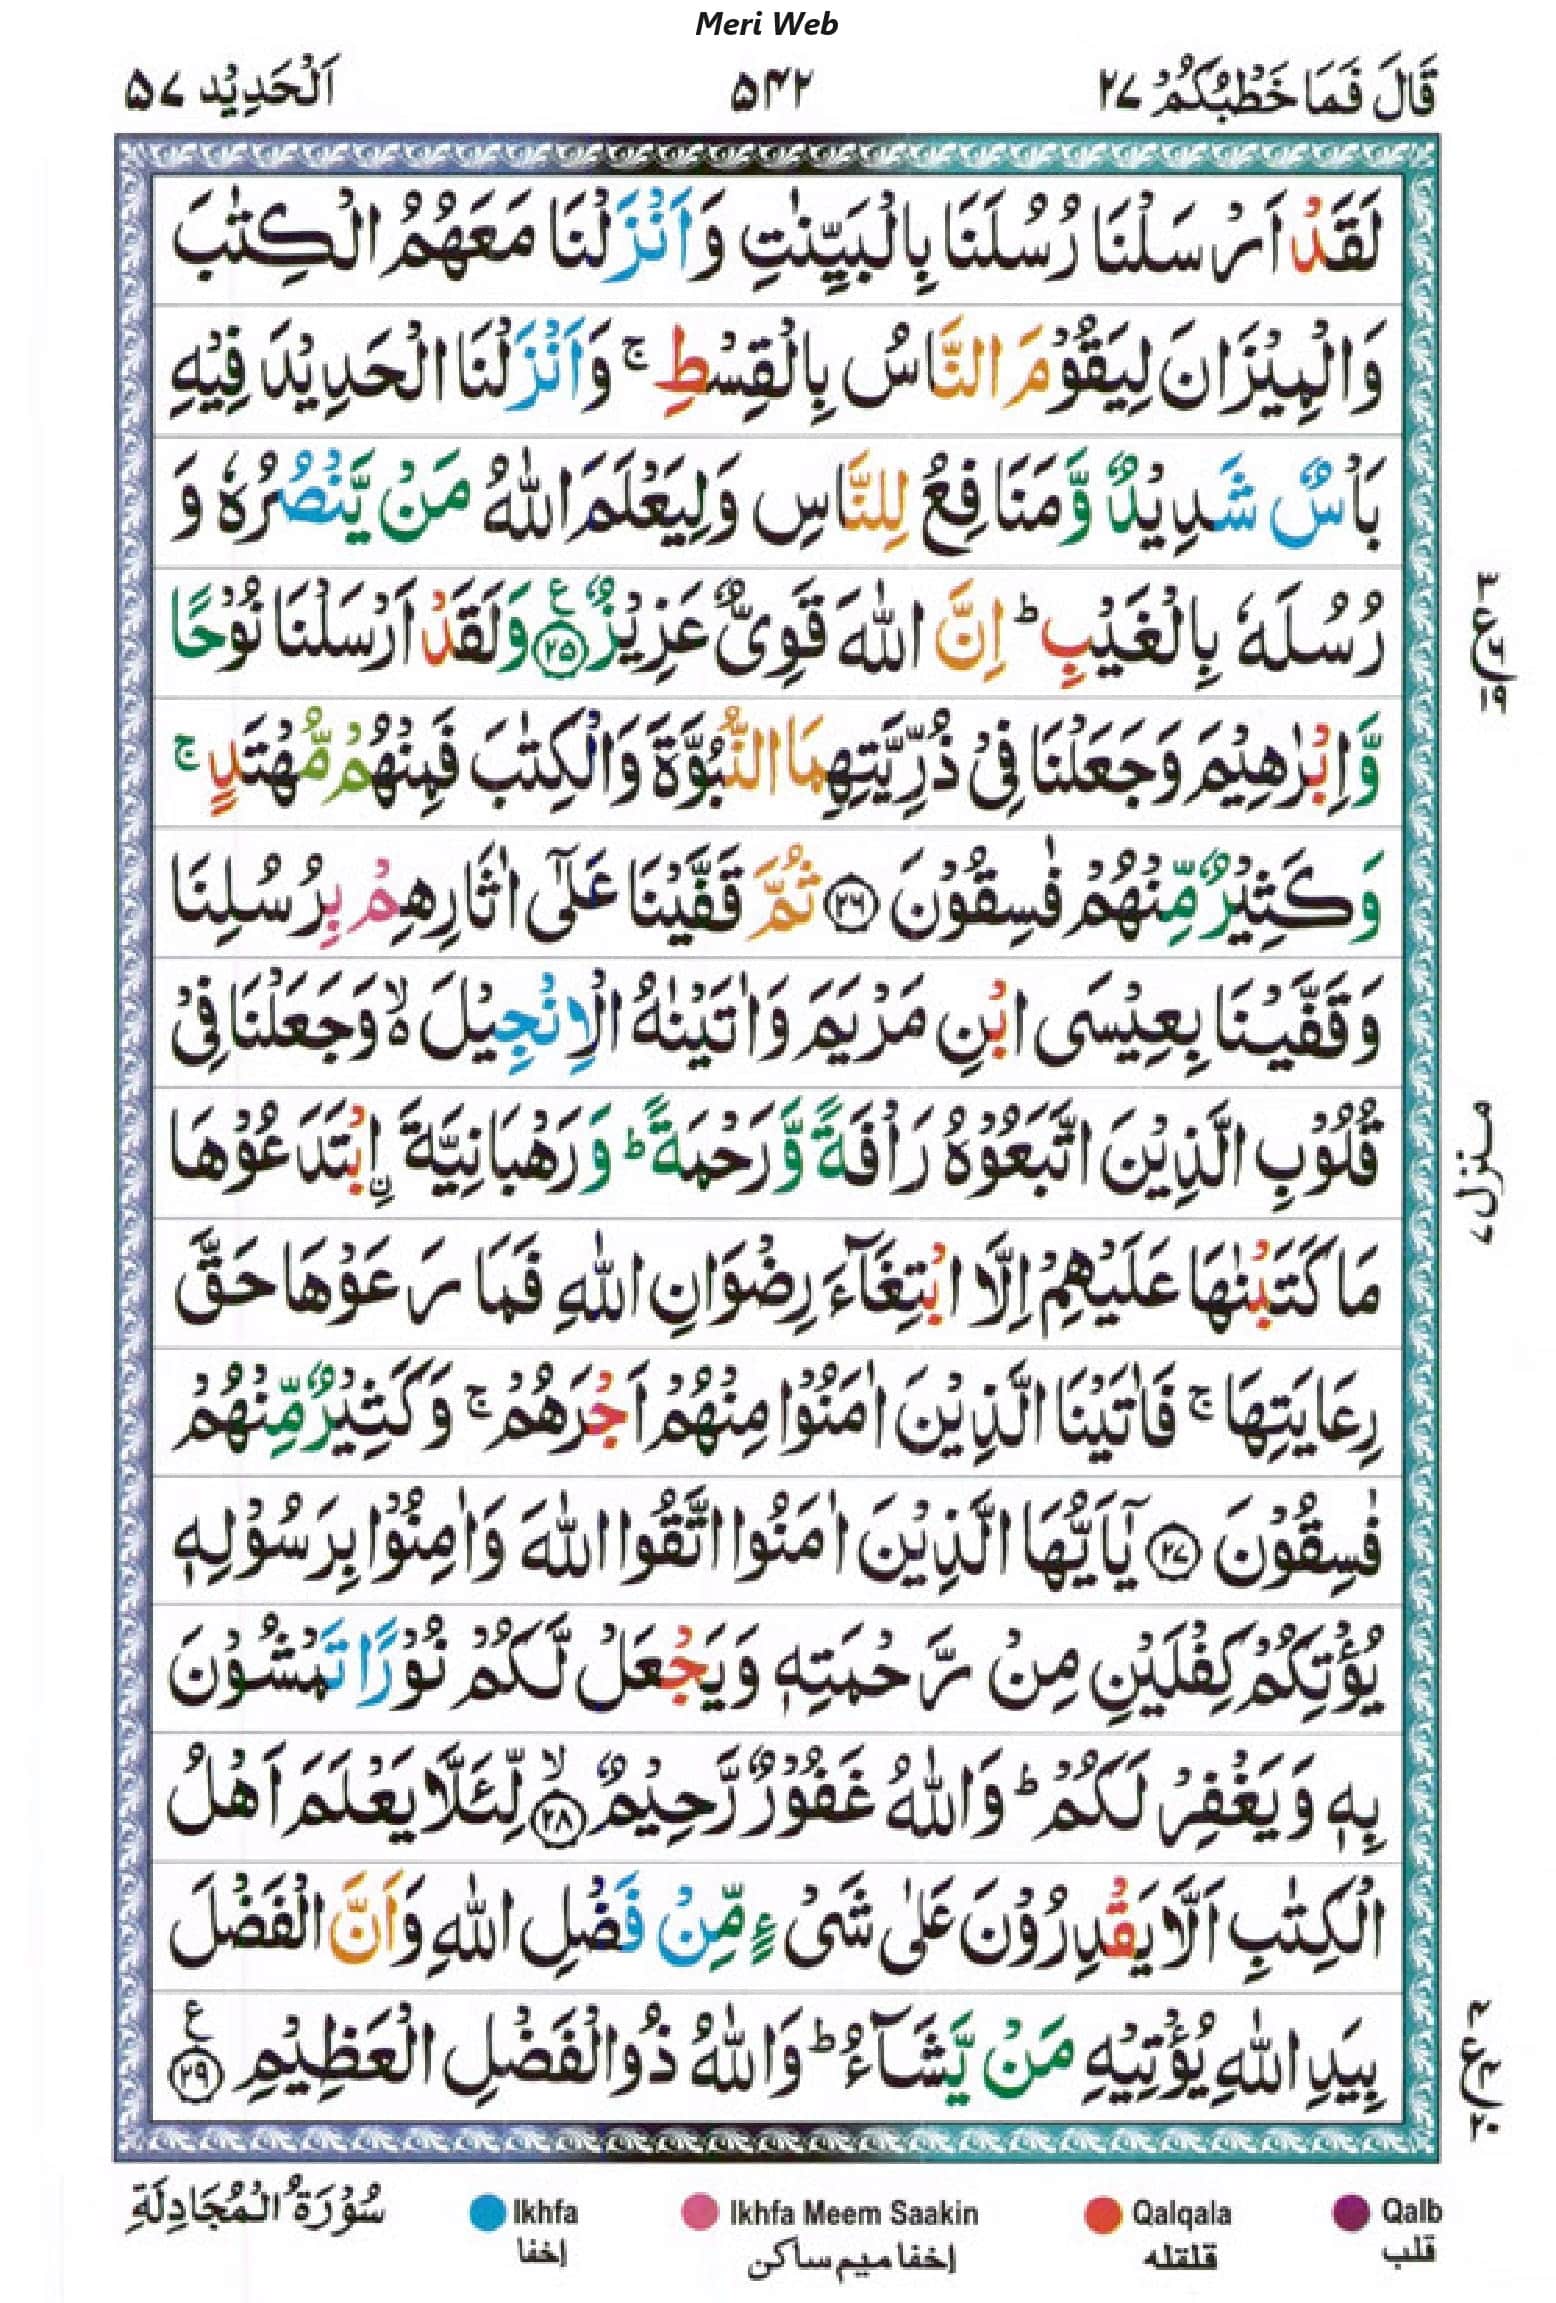 Meri Web
قَالَ فَمَا خَطْبُكُمْ ۲۷
۵۴۲
اَلْحَدِيْد ۵۷
لَقَدْ اَرْسَلْنَا رُسُلَنَا بِالْبَيِّنٰتِ وَاَنْزَلْنَا مَعَهُمُ الْكِتٰبَ
وَالْمِيْزَانَ لِيَقُوْمَ النَّاسُ بِالْقِسْطِ ۚ وَاَنْزَلْنَا الْحَدِيْدَ فِيْهِ
بَاْسٌ شَدِيْدٌ وَّمَنَافِعُ لِلنَّاسِ وَلِيَعْلَمَ اللّٰهُ مَنْ يَّنْصُرُهٗ وَ
رُسُلَهٗ بِالْغَيْبِ ؕ اِنَّ اللّٰهَ قَوِىٌّ عَزِيْزٌ ۲۵ ع وَلَقَدْ اَرْسَلْنَا نُوْحًا
وَّاِبْرٰهِيْمَ وَجَعَلْنَا فِىْ ذُرِّيَّتِهِمَا النُّبُوَّةَ وَالْكِتٰبَ فَمِنْهُمْ مُّهْتَدٍ ۚ
وَكَثِيْرٌ مِّنْهُمْ فٰسِقُوْنَ ۲۶ ثُمَّ قَفَّيْنَا عَلٰٓى اٰثَارِهِمْ بِرُسُلِنَا
وَقَفَّيْنَا بِعِيْسَى ابْنِ مَرْيَمَ وَاٰتَيْنٰهُ الْاِنْجِيْلَ ۙ۬ وَجَعَلْنَا فِىْ
قُلُوْبِ الَّذِيْنَ اتَّبَعُوْهُ رَاْفَةً وَّرَحْمَةً ؕ وَرَهْبَانِيَّةَ اِ۟بْتَدَعُوْهَا
مَا كَتَبْنٰهَا عَلَيْهِمْ اِلَّا ابْتِغَآءَ رِضْوَانِ اللّٰهِ فَمَا رَعَوْهَا حَقَّ
رِعَايَتِهَا ۚ فَاٰتَيْنَا الَّذِيْنَ اٰمَنُوْا مِنْهُمْ اَجْرَهُمْ ۚ وَكَثِيْرٌ مِّنْهُمْ
فٰسِقُوْنَ ۲۷ يٰۤاَيُّهَا الَّذِيْنَ اٰمَنُوا اتَّقُوا اللّٰهَ وَاٰمِنُوْا بِرَسُوْلِهٖ
يُؤْتِكُمْ كِفْلَيْنِ مِنْ رَّحْمَتِهٖ وَيَجْعَلْ لَّكُمْ نُوْرًا تَمْشُوْنَ
بِهٖ وَيَغْفِرْ لَكُمْ ؕ وَاللّٰهُ غَفُوْرٌ رَّحِيْمٌ ۲۸ ۙ لِّئَلَّا يَعْلَمَ اَهْلُ
الْكِتٰبِ اَلَّا يَقْدِرُوْنَ عَلٰى شَىْءٍ مِّنْ فَضْلِ اللّٰهِ وَاَنَّ الْفَضْلَ
بِيَدِ اللّٰهِ يُؤْتِيْهِ مَنْ يَّشَآءُ ؕ وَاللّٰهُ ذُو الْفَضْلِ الْعَظِيْمِ ۲۹ ع
۳
ع
۶
۱۹
منزل ۷
۴
ع
۴
۲۰
سُوْرَةُ الْمُجَادِلَةِ
Ikhfa
Ikhfa Meem Saakin
Qalqala
Qalb
إخفا
إخفا ميم ساكن
قلقله
قلب